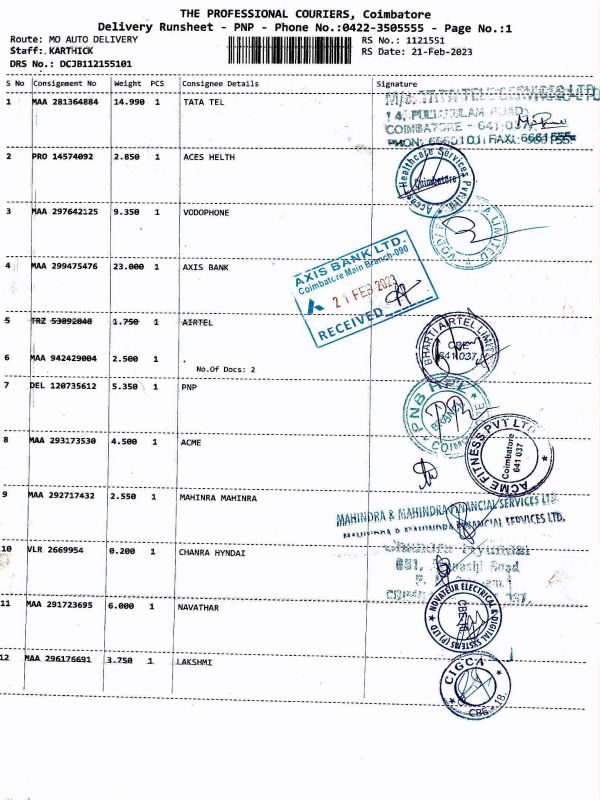 THE PROFESSIONAL COURIERS, Coimbatore
Delivery Runsheet - PNP - Phone No.:0422-3505555 - Page No.:1
Route: MO AUTO DELIVERY RS No.: 1121551
Staff: KARTHICK RS Date: 21-Feb-2023
DRS No.: DCJB112155101
S No Consignment No Weight PCS Consignee Details Signature
1 MAA 281364884 14.990 1 TATA TEL
COIMBATORE - 641 037
2 PRO 14574092 2.850 1 ACES HELTH
Healthcare Services Pvt Ltd
Coimbatore
3 MAA 297642125 9.350 1 VODOPHONE
LIMITED
4 MAA 299475476 23.000 1 AXIS BANK
AXIS BANK LTD.
Coimbatore Main Branch-090
21 FEB 2023
RECEIVED
5 TRZ 53892848 1.750 1 AIRTEL
BHARTI AIRTEL LIMITED
CBE
641 037
6 MAA 942429004 2.500 1 .
No.Of Docs: 2
7 DEL 120735612 5.350 1 PNP
PNB
8 MAA 293173530 4.500 1 ACME
ACME FITNESS PVT LTD
Coimbatore
641 037
9 MAA 292717432 2.550 1 MAHINRA MAHINRA
MAHINDRA & MAHINDRA FINANCIAL SERVICES LTD.
MAHINDRA & MAHINDRA FINANCIAL SERVICES LTD.
10 VLR 2669954 0.200 1 CHANRA HYNDAI
Road
11 MAA 291723695 6.000 1 NAVATHAR
NOVATEUR ELECTRICAL & DIGITAL SYSTEMS (P) LTD
12 MAA 296176691 3.750 1 LAKSHMI
CIGCA
CBE - 18.